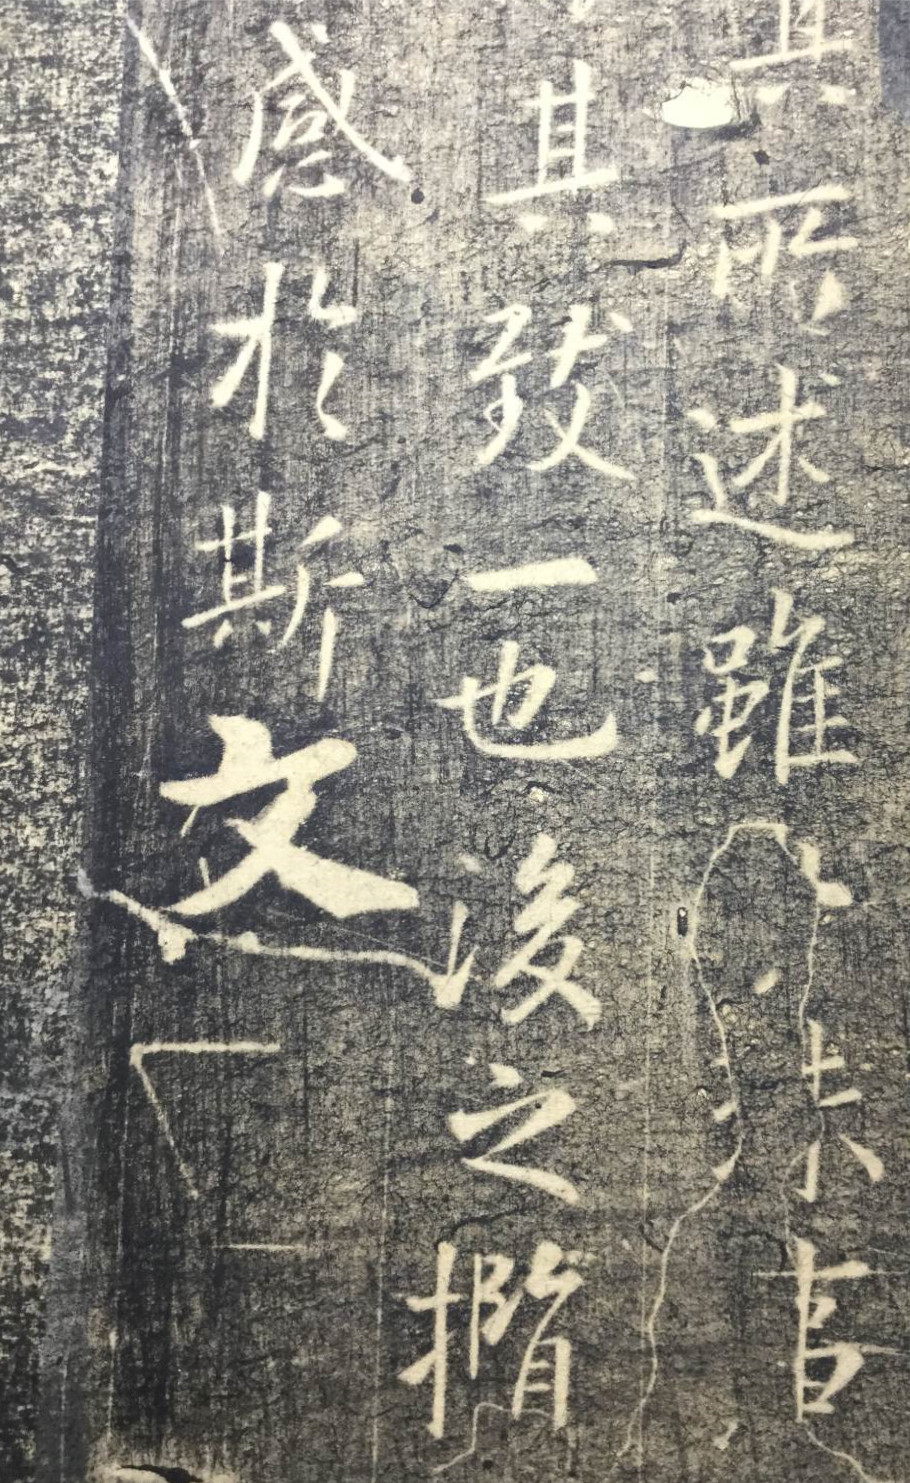 其所述雖
其致一也後之攬
感於斯文